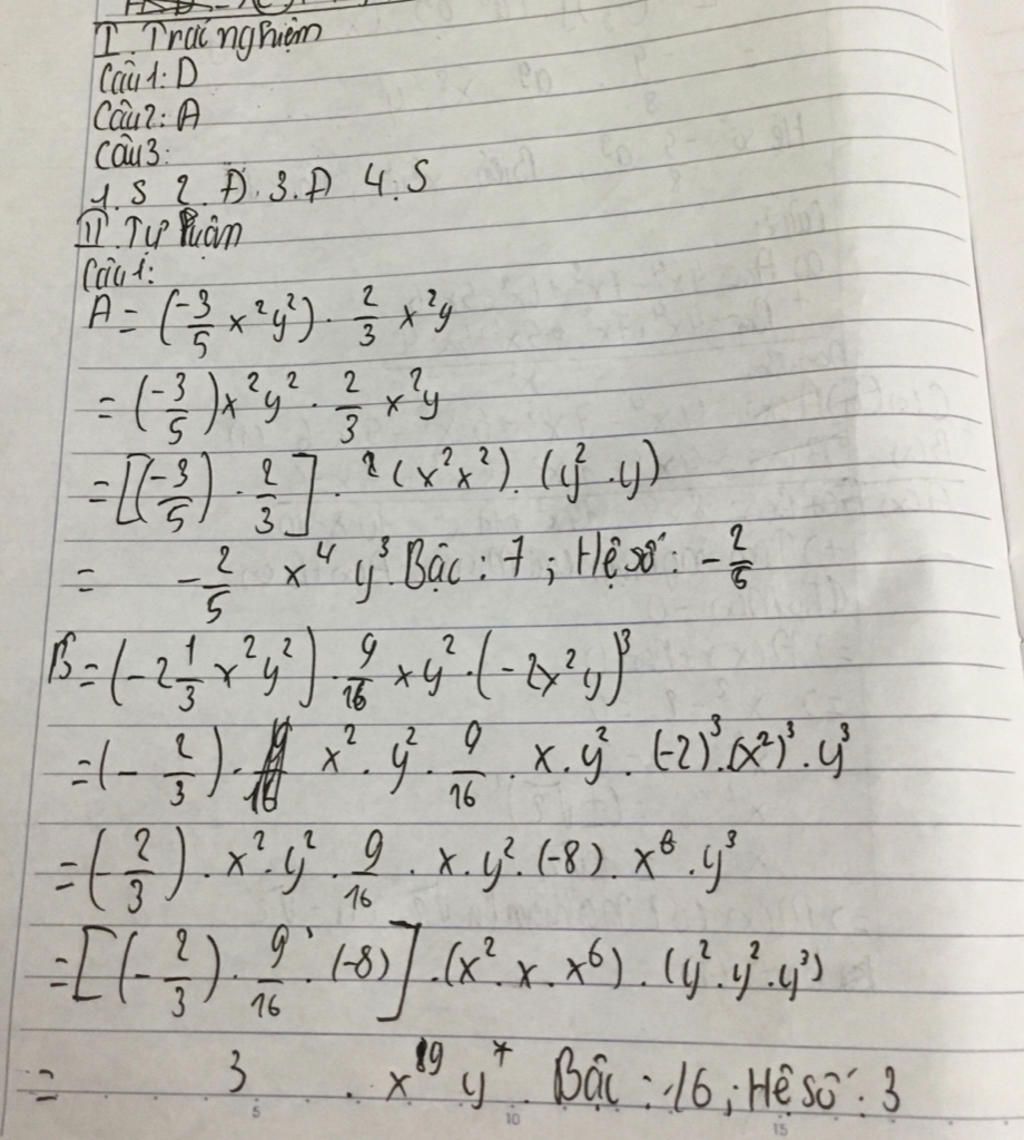 I. Trắc nghiệm
Câu 1: D
Câu 2: A
Câu 3:
1. S 2. Đ. 3. Đ 4. S
II. Tự luận
Câu 1:
A = (-3/5 x²y²) · 2/3 x²y
= (-3/5) x²y² · 2/3 x²y
= [(-3/5) · 2/3] · ² (x²x²) · (y² · y)
= -2/5 x⁴ y³. Bậc: 7; Hệ số: -2/5
B = (-2 1/3 x²y²) · 9/16 xy² · (-2x²y)³
= (-2/3) · x² · y² · 9/16 · x · y² · (-2)³ · (x²)³ · y³
= (-2/3) · x² · y² · 9/16 · x · y² · (-8) · x⁶ · y³
= [(-2/3) · 9/16 · (-8)] · (x² · x · x⁶) · (y² · y² · y³)
= 3 · x⁹ y⁷. Bậc: 16; Hệ số: 3